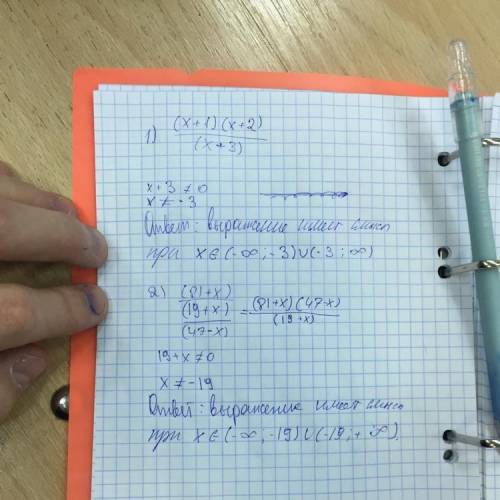 1) (x+1)(x+2) / (x+3)
x+3 ≠ 0
x ≠ -3
Ответ: выражение имеет смысл
при x ∈ (-∞; -3) ∪ (-3; ∞)
2) (81+x) / ((19+x) / (47-x)) = (81+x)(47-x) / (19+x)
19+x ≠ 0
x ≠ -19
Ответ: выражение имеет смысл
при x ∈ (-∞; -19) ∪ (-19; +∞).